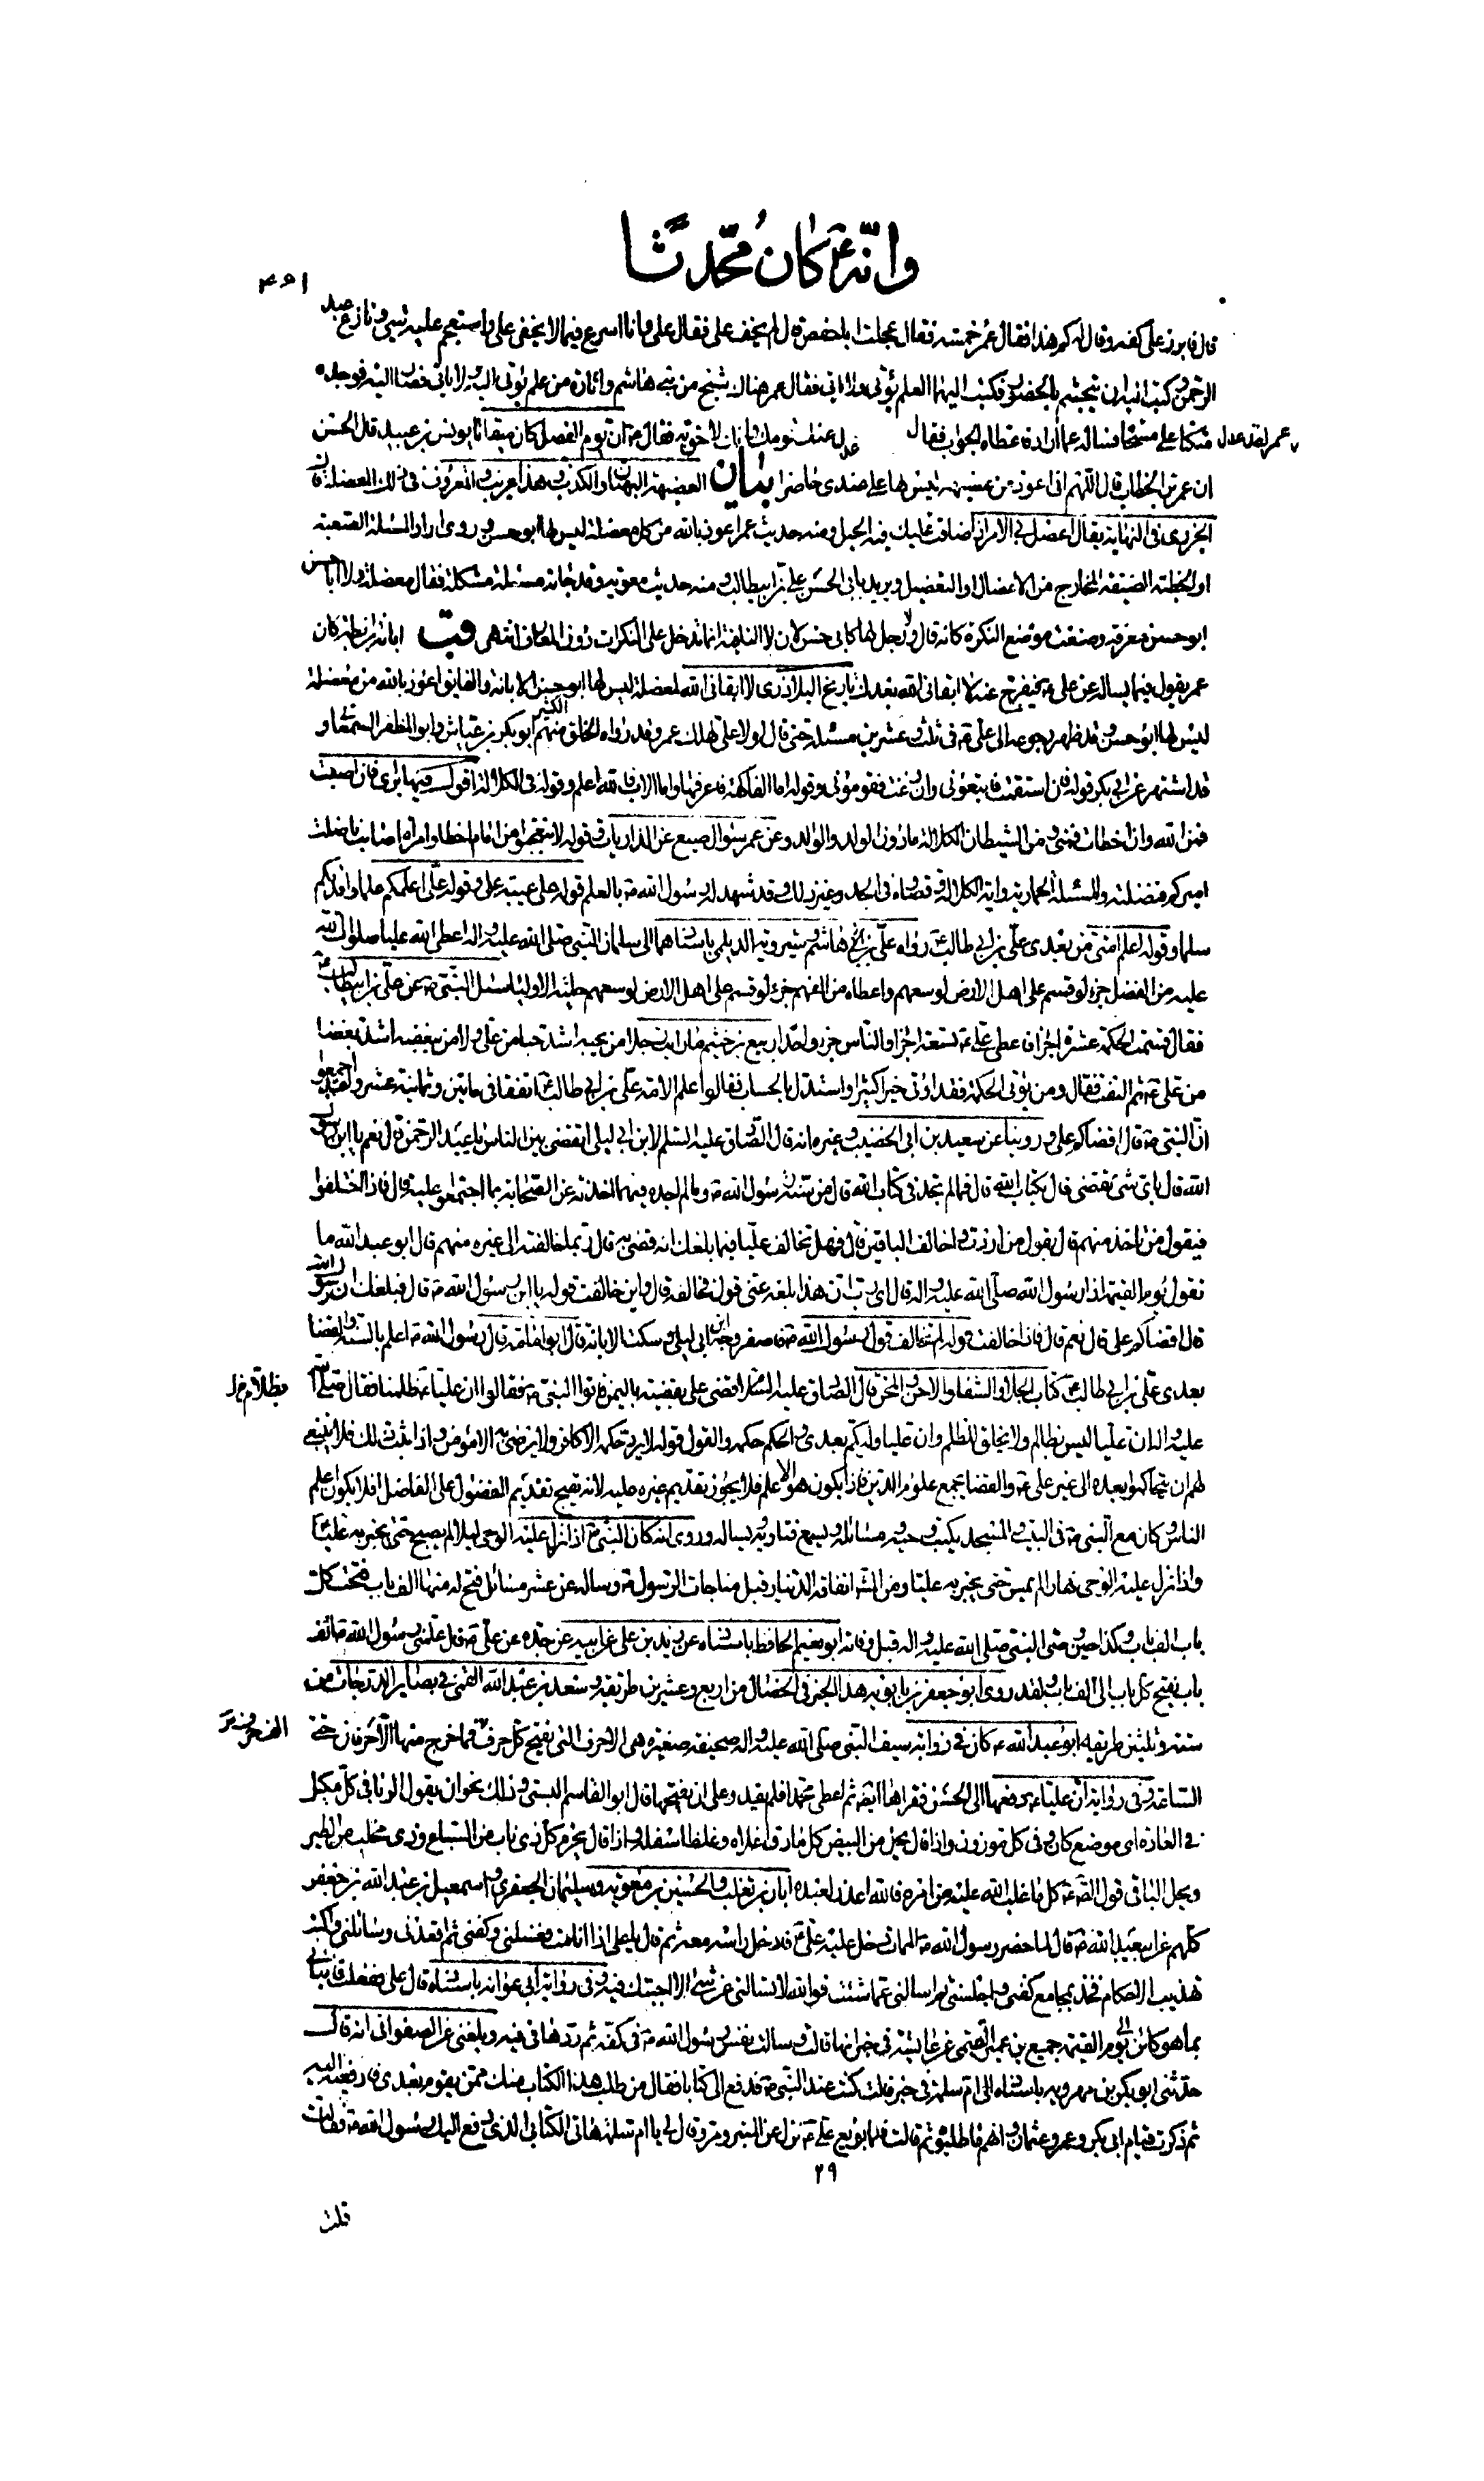 وانّه ع كان محّدثا
٤٥١
قال فابرز علي كفه وقال له كم هذا فقال عمر خمسة فقال عجلت ابا حفص قال لم يخف علي فقال علي وانا اسرع فيما لا يخفى علي واستعجم عليه شيء ونازع عبد
الرحمن فكتبا اليه ان يتجشم بالحضور فكتب اليهما العلم يؤتى ولا ياتي فقال عمر هناك شيخ من بني هاشم واثارة من علم يؤتى اليه ولا ياتي فصار اليه فوجده
متكئا على مسحاة فساله عما اراد فاعطاه الجواب فقال عمر لقد عدل عنك قومك وانك لاحق به فقال ع ان يوم الفصل كان ميقاتا يونس بن عبيد قال الحسن
ان عمر بن الخطاب قال اللهم اني اعوذ بك من عضيهة ليس لها علي عندي حاضرا بيان العضيهة البهتان والكذب وهذا غريب والمعروف في ذلك المعضلة قال
الجزري في النهاية يقال اعضل بي الامر اذا ضاقت عليك فيه الحيل ومنه حديث عمر اعوذ بالله من كل معضلة ليس لها ابو حسن وروي اراد المسئلة الصعبة
او الخطة الضيقة المخارج من الاعضال او التعضيل ويريد بابي الحسن علي بن ابيطالب ومنه حديث معوية وقد جائته مسئلة مشكلة فقال معضلة ولا ابا حسن
ابو حسن معرفة وضعت موضع النكرة كانه قال ولا رجل لها كابي حسن لان لا النافية انما تدخل على النكرات دون المعارف انتهى قب ابانة ابن بطة كان
عمر يقول فيما يساله عن علي ع فيفرج عنه لا ابقاني الله بعدك تاريخ البلاذري لا ابقاني الله لمعضلة ليس لها ابو حسن الابانة والفائق اعوذ بالله من معضلة
ليس لها ابو حسن وقد ظهر رجوعه الى علي ع في ثلث وعشرين مسئلة حتى قال لولا علي لهلك عمر وقد رواه الخلق الكثير منهم ابو بكر بن عياش وابو المظفر السمعاني و
قد اشتهر عن ابي بكر قوله فان استقمت فاتبعوني وان زغت فقوموني وقوله اما الفاكهة فاعرفها واما الاب فالله اعلم وقوله في الكلالة اقول فيها برايي فان اصبت
فمن الله وان اخطات فمني ومن الشيطان الكلالة مادون الولد والوالد وعن عمر سؤال صبيع عن الذاريات وقوله لا تتعجبوا من امام اخطا وامراة اصابت ناضلت
اميركم فنضلته والمسئلة الحمارية واية الكلالة وقضاؤه في الجد وغير ذلك وقد شهد له رسول الله ص بالعلم قوله علي عيبة علمي وقوله علي اعلمكم علما واقدمكم
سلما وقوله اعلم امتي من بعدي علي بن ابي طالب ع رواه علي بن هاشم وشيرويه الديلمي باسنادهما الى سلمان النبي صلى الله عليه واله اعطى الله عليا صلوات الله
عليه من الفضل جزءا لو قسم على اهل الارض لوسعهم واعطاه من الفهم جزءا لو قسم على اهل الارض لوسعهم حلية الاولياء سئل النبي ص عن علي بن ابيطالب ع
فقال قسمت الحكمة عشرة اجزاء فاعطي علي ع تسعة اجزاء والناس جزء واحدا ربيع بن خثيم ما رايت رجلا من يحبه اشد حبا من علي ولا من يبغضه اشد بغضا
من علي ع ثم التفت فقال ومن يؤتى الحكمة فقد اوتي خيرا كثيرا واستدل بالحساب فقالوا اعلم الامة علي بن ابي طالب ع اتفقا في مائتين وثمانية عشر ولقد اجمعوا
ان النبي ص قال اقضاكم علي وروينا عن سعيد بن ابي الخضيب وغيره انه قال الصادق عليه السلم لابن ابي ليلى اتقضي بين الناس يا عبد الرحمن قال نعم يا ابن رسول
الله قال باي شيء تقضي قال بكتاب الله قال فما لم تجد في كتاب الله قال من سنة رسول الله ص وما لم اجده فيهما اخذته عن الصحابة بما اجتمعوا عليه قال فاذا اختلفوا
فبقول من تاخذ منهم قال بقول من اردت واخالف الباقين قال فهل تخالف عليا فيما بلغك انه قضى به قال ربما خالفته الى غيره منهم قال ابو عبد الله ما
تقول يوم القيمة اذا رسول الله صلى الله عليه واله قال اي رب ان هذا بلغه عني قول فخالفه قال واين خالفت قوله يا ابن رسول الله ص قال فبلغك ان رسول الله
قال اقضاكم علي قال نعم قال فاذا خالفت قوله الم تخالف قول رسول الله ص فاصفر وجه ابن ابي ليلى وسكت الابانة قال ابو امامة قال رسول الله ص اعلم بالسنة والقضا
بعدي علي بن ابي طالب ع كتاب الجلاء والشفاء والاحن والمحن قال الصادق عليه السلم قضى علي بقضية باليمن فاتوا النبي ص فقالوا ان عليا ع ظلمنا فقال صلى الله
عليه واله ان عليا ليس بظالم ولا يخلق للظلم وان عليا وليكم بعدي والحكم حكمه والقول قوله لا يرد حكمه الا كافر ولا يرضى به الا مؤمن واذا ثبت ذلك فلا ينبغي
لهم ان يتحاكموا بعده الى غير علي ع والقضا يجمع علوم الدين فاذا يكون هو الاعلم فلا يجوز تقديم غيره عليه لانه يقبح تقديم المفضول على الفاضل افلا يكون اعلم
الناس وكان مع النبي ص في البيت والمسجد يكتب وحيه ومسائله ويسمع فتاويه ويساله وروي انه كان النبي ص اذا نزل عليه الوحي ليلا لم يصبح حتى يخبر به عليا
واذا نزل عليه الوحي نهارا لم يمس حتى يخبر به عليا ومن المشهور انفاقه الدينار قبل مناجات الرسول ص وساله عن عشر مسائل فتح له منها الف باب فتحت كل
باب الف باب وكذا حين وصى النبي صلى الله عليه واله قبل وفاته ابو نعيم الحافظ باسناده عن زيد بن علي عن ابيه عن جده عن علي ع قال علمني رسول الله ص الف
باب يفتح كل باب الى الف باب ولقد روى ابو جعفر بن بابويه هذا الخبر في الخصال من اربع وعشرين طريقة وسعد بن عبد الله القمي في بصاير الدرجات من
ستة وثلثين طريقة ابو عبد الله ع كان في ذوابة سيف النبي صلى الله عليه واله صحيفة صغيرة هي الاحرف التي يفتح كل حرف الف حرف فما خرج منها الا حرفان حتى
الساعة وفي رواية ان عليا ع دفعها الى الحسن فقراها ايضا ثم اعطى محمدا فلم يقدر على ان يفتحها قال ابو القاسم البستي وذلك نحو ان يقول الربا في كل مكيل
في العادة اي موضع كان وفي كل موزون واذا قال يحل من البيض كل ما دق اعلاه وغلظ اسفله واذا قال يحرم كل ذي ناب من السباع وذي مخلب من الطير
ويحل الباقي قول الص ع كل ما غلب الله عليه من امره فالله اعذر لعبده ابان بن تغلب والحسين بن معوية وسليمان الجعفري واسمعيل بن عبد الله بن جعفر
كلهم عن ابيعبد الله ع قال لما حضر رسول الله ص الممات دخل عليه علي ع فادخل راسه معه ثم قال يا علي اذا انا مت فغسلني وكفني ثم اقعدني وسائلني واكتب
تهذيب الاحكام فخذ بمجامع كفني واجلسني ثم اسالني عما شئت فوالله لا تسالني عن شيء الا اجبتك فيه وفي رواية ابي عوانة باسناده قال علي ففعلت فانباني
بما هو كائن الى يوم القيمة جميع بن عمير التيمي عن عايشة في خبر انها قالت وسالت نفس رسول الله ص في كفه ثم ردها في فيه وبلغني عن الصفواني انه قال
حدثني ابو بكر بن مهرويه باسناده الى ام سلمة في خبر قالت كنت عند النبي ص فدفع الي كتابا فقال من طلب هذا الكتاب منك ممن يقوم بعدي فادفعيه اليه
ثم ذكرت قيام ابي بكر وعمر وعثمان وانهم ما طلبوه ثم قالت فلما بويع علي ع نزل عن المنبر ومر وقال لي يا ام سلمة هاتي الكتاب الذي دفع اليك رسول الله ص قالت
٢٩
قلت